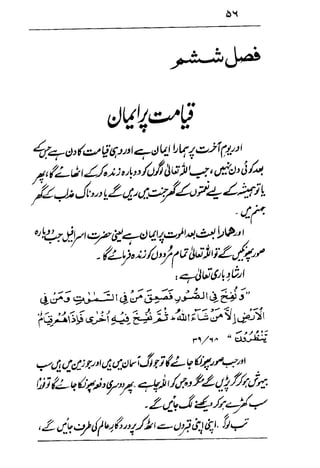 ۵۶
فصل ششم
قیامت پر ایمان
اور یومِ آخرت پر ہمارا ایمان ہے اور وہی قیامت کا دن ہے جس کے
بعد کوئی دن نہیں، جب اللہ تعالیٰ لوگوں کو دوبارہ زندہ کرکے اٹھائے گا، پھر
یا تو ہمیشہ کے لیے نعمتوں کے گھر جنت میں رہیں گے یا دردناک عذاب کے گھر
جہنم میں۔
اور ہمارا بعث بعد الموت پر ایمان ہے یعنی حضرت اسرافیل جب دوبارہ
صور پھونکیں گے تو اللہ تعالیٰ تمام مردوں کو زندہ فرمائے گا۔
ارشادِ باری تعالیٰ ہے:
”وَنُفِخَ فِي الصُّوْرِ فَصَعِقَ مَنْ فِي السَّمٰوٰتِ وَمَنْ فِي
الْاَرْضِ اِلَّا مَنْ شَاءَ اللهُ ثُمَّ نُفِخَ فِيْهِ اُخْرٰى فَاِذَا هُمْ قِيَامٌ
يَنْظُرُوْنَ“ ۳۹/۶۸
اور جب صور پھونکا جائے گا تو جو لوگ آسمان میں ہیں اور جو زمین میں ہیں سب
بیہوش ہو کر گر پڑیں گے مگر وہ جس کو اللہ چاہے، پھر دوسری دفعہ پھونکا جائے گا تو فوراً
سب کھڑے ہو کر دیکھنے لگ جائیں گے۔
تب لوگ اپنی اپنی قبروں سے اٹھ کر پروردگارِ عالم کی طرف جائیں گے،